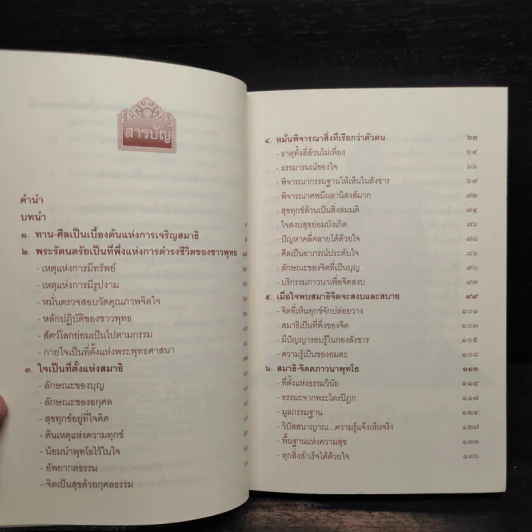 สารบัญ
คำนำ
บทนำ
๑. ทาน-ศีลเป็นเบื้องต้นแห่งการเจริญสมาธิ
๒. พระรัตนตรัยเป็นที่พึ่งแห่งการดำรงชีวิตของชาวพุทธ
- เหตุแห่งการมีทรัพย์
- เหตุแห่งการมีรูปงาม
- หมั่นตรวจสอบวัดคุณภาพจิตใจ
- หลักปฏิบัติของชาวพุทธ
- สัตว์โลกย่อมเป็นไปตามกรรม
- กายใจเป็นที่ตั้งแห่งพระพุทธศาสนา
๓. ใจเป็นที่ตั้งแห่งสมาธิ
- ลักษณะของบุญ
- ลักษณะของอกุศล
- สุขทุกข์อยู่ที่ใจคิด
- ต้นเหตุแห่งความทุกข์
- น้อมนำพุทโธไว้ในใจ
- อัพยากตธรรม
- จิตเป็นสุขด้วยกุศลธรรม
๔. หมั่นพิจารณาสิ่งที่เรียกว่าตัวตน ๖๒
- ธาตุทั้งสี่ล้วนไม่เที่ยง ๖๔
- ธรรมารมณ์ของใจ ๖๖
- พิจารณากรรมฐานให้เห็นในสังขาร ๖๙
- พิจารณาศพมีผลานิสงส์มาก ๗๒
- สุขทุกข์ล้วนเป็นสิ่งสมมติ ๗๔
- ใจสงบสุขย่อมบังเกิด ๗๘
- ปัญหาคลี่คลายได้ด้วยใจ ๘๓
- ศีลเป็นอาภรณ์ประดับใจ ๘๖
- ลักษณะของจิตที่เป็นบุญ ๙๐
- บริกรรมภาวนาเพื่อจิตสงบ ๙๓
๕. เมื่อใจพบสมาธิจิตจะสงบและสบาย ๙๙
- จิตที่เห็นทุกข์จักปล่อยวาง ๑๐๑
- สมาธิเป็นที่พึ่งของจิต ๑๐๓
- มีปัญญารอบรู้ในกองสังขาร ๑๐๕
- ความรู้เป็นของอมตะ ๑๐๘
๖. สมาธิ-จิตตภาวนาพุทโธ ๑๑๓
- ที่ตั้งแห่งธรรมวินัย ๑๑๕
- ธรรมะจากพระไตรปิฎก ๑๑๙
- มูลกรรมฐาน ๑๒๔
- วิปัสสนาญาณ...ความรู้แจ้งเห็นจริง ๑๒๗
- พื้นฐานแห่งความสุข ๑๓๓
- ทุกสิ่งสำเร็จได้ด้วยใจ ๑๓๖